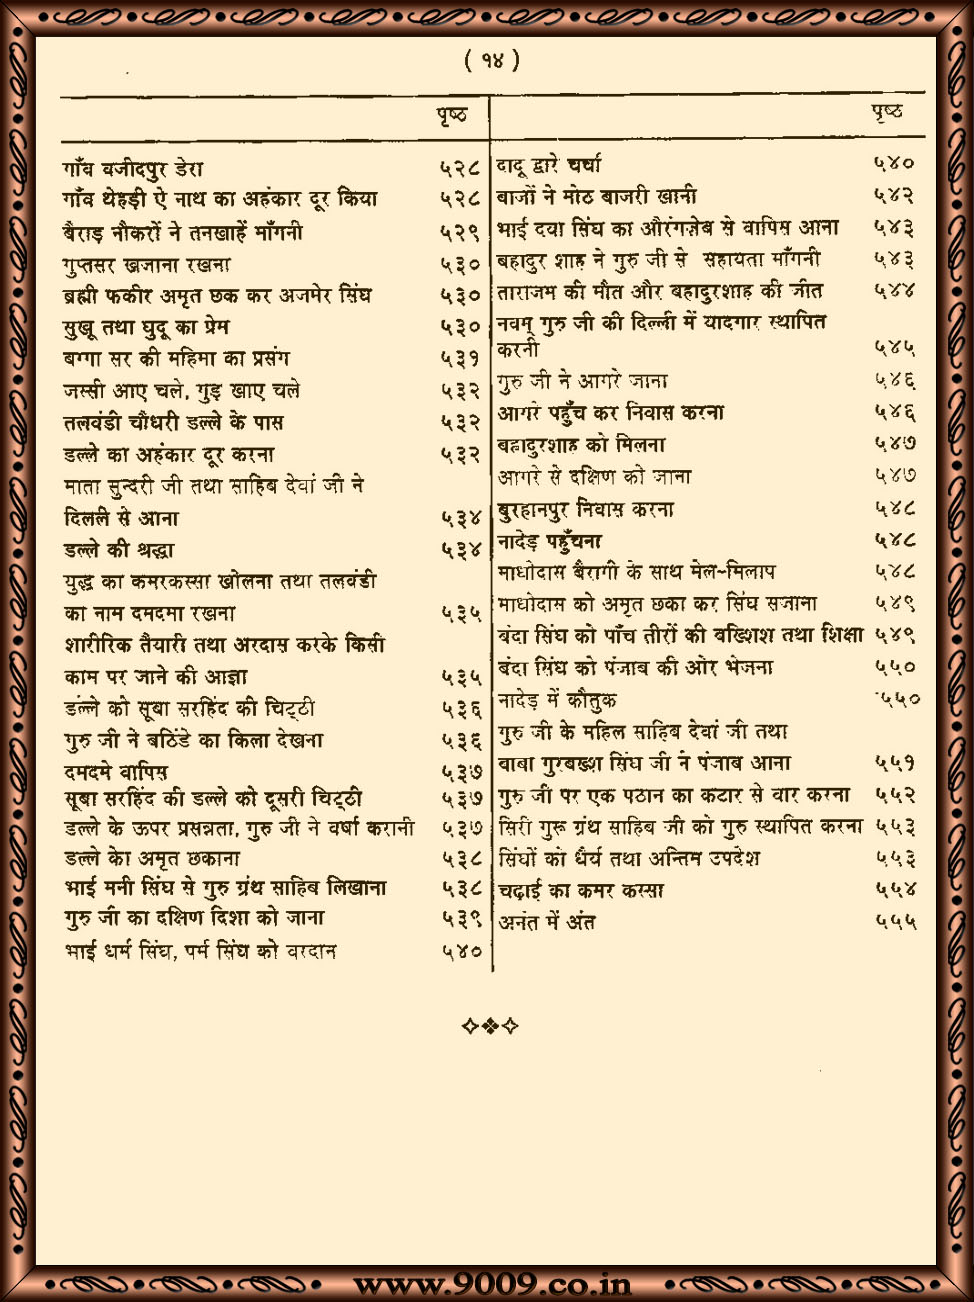 ( १४ )
पृष्ठ
गाँव वजीदपुर डेरा ५२८
गाँव थेहड़ी ऐ नाथ का अहंकार दूर किया ५२८
बैराड़ नौकरों ने तनखाहें माँगनी ५२९
गुप्तसर खजाना रखना ५३०
ब्रह्मी फकीर अमृत छक कर अजमेर सिंघ ५३०
सुखू तथा घुदू का प्रेम ५३०
बग्गा सर की महिमा का प्रसंग ५३१
जस्सी आए चले, गुड़ खाए चले ५३२
तलवंडी चौधरी डल्ले के पास ५३२
डल्ले का अहंकार दूर करना ५३२
माता सुन्दरी जी तथा साहिब देवां जी ने
दिलली से आना ५३४
डल्ले की श्रद्धा ५३४
युद्ध का कमरकस्सा खोलना तथा तलवंडी
का नाम दमदमा रखना ५३५
शारीरिक तैयारी तथा अरदास करके किसी
काम पर जाने की आज्ञा ५३५
डल्ले को सूबा सरहिंद की चिट्ठी ५३६
गुरु जी ने बठिंडे का किला देखना ५३६
दमदमे वापिस ५३७
सूबा सरहिंद की डल्ले को दूसरी चिट्ठी ५३७
डल्ले के ऊपर प्रसन्नता, गुरु जी ने वर्षा करानी ५३७
डल्ले को अमृत छकाना ५३८
भाई मनी सिंघ से गुरु ग्रंथ साहिब लिखाना ५३८
गुरु जी का दक्षिण दिशा को जाना ५३९
भाई धर्म सिंघ, पर्म सिंघ को वरदान ५४०
पृष्ठ
दादू द्वारे चर्चा ५४०
बाजों ने मोठ बाजरी खानी ५४२
भाई दया सिंघ का औरंगज़ेब से वापिस आना ५४३
बहादुर शाह ने गुरु जी से सहायता माँगनी ५४३
ताराजम की मौत और बहादुरशाह की जीत ५४४
नवम् गुरु जी की दिल्ली में यादगार स्थापित
करनी ५४५
गुरु जी ने आगरे जाना ५४६
आगरे पहुँच कर निवास करना ५४६
बहादुरशाह को मिलना ५४७
आगरे से दक्षिण को जाना ५४७
बुरहानपुर निवास करना ५४८
नादेड़ पहुँचना ५४८
माधोदास बैरागी के साथ मेल-मिलाप ५४८
माधोदास को अमृत छका कर सिंघ सजाना ५४९
बंदा सिंघ को पाँच तीरों की बख्शिश तथा शिक्षा ५४९
बंदा सिंघ को पंजाब की ओर भेजना ५५०
नादेड़ में कौतुक ५५०
गुरु जी के महिल साहिब देवां जी तथा
बाबा गुरबख्श सिंघ जी ने पंजाब आना ५५१
गुरु जी पर एक पठान का कटार से वार करना ५५२
सिरी गुरू ग्रंथ साहिब जी को गुरु स्थापित करना ५५३
सिंघों को धैर्य तथा अन्तिम उपदेश ५५३
चढ़ाई का कमर कस्सा ५५४
अनंत में अंत ५५५
www.9009.co.in